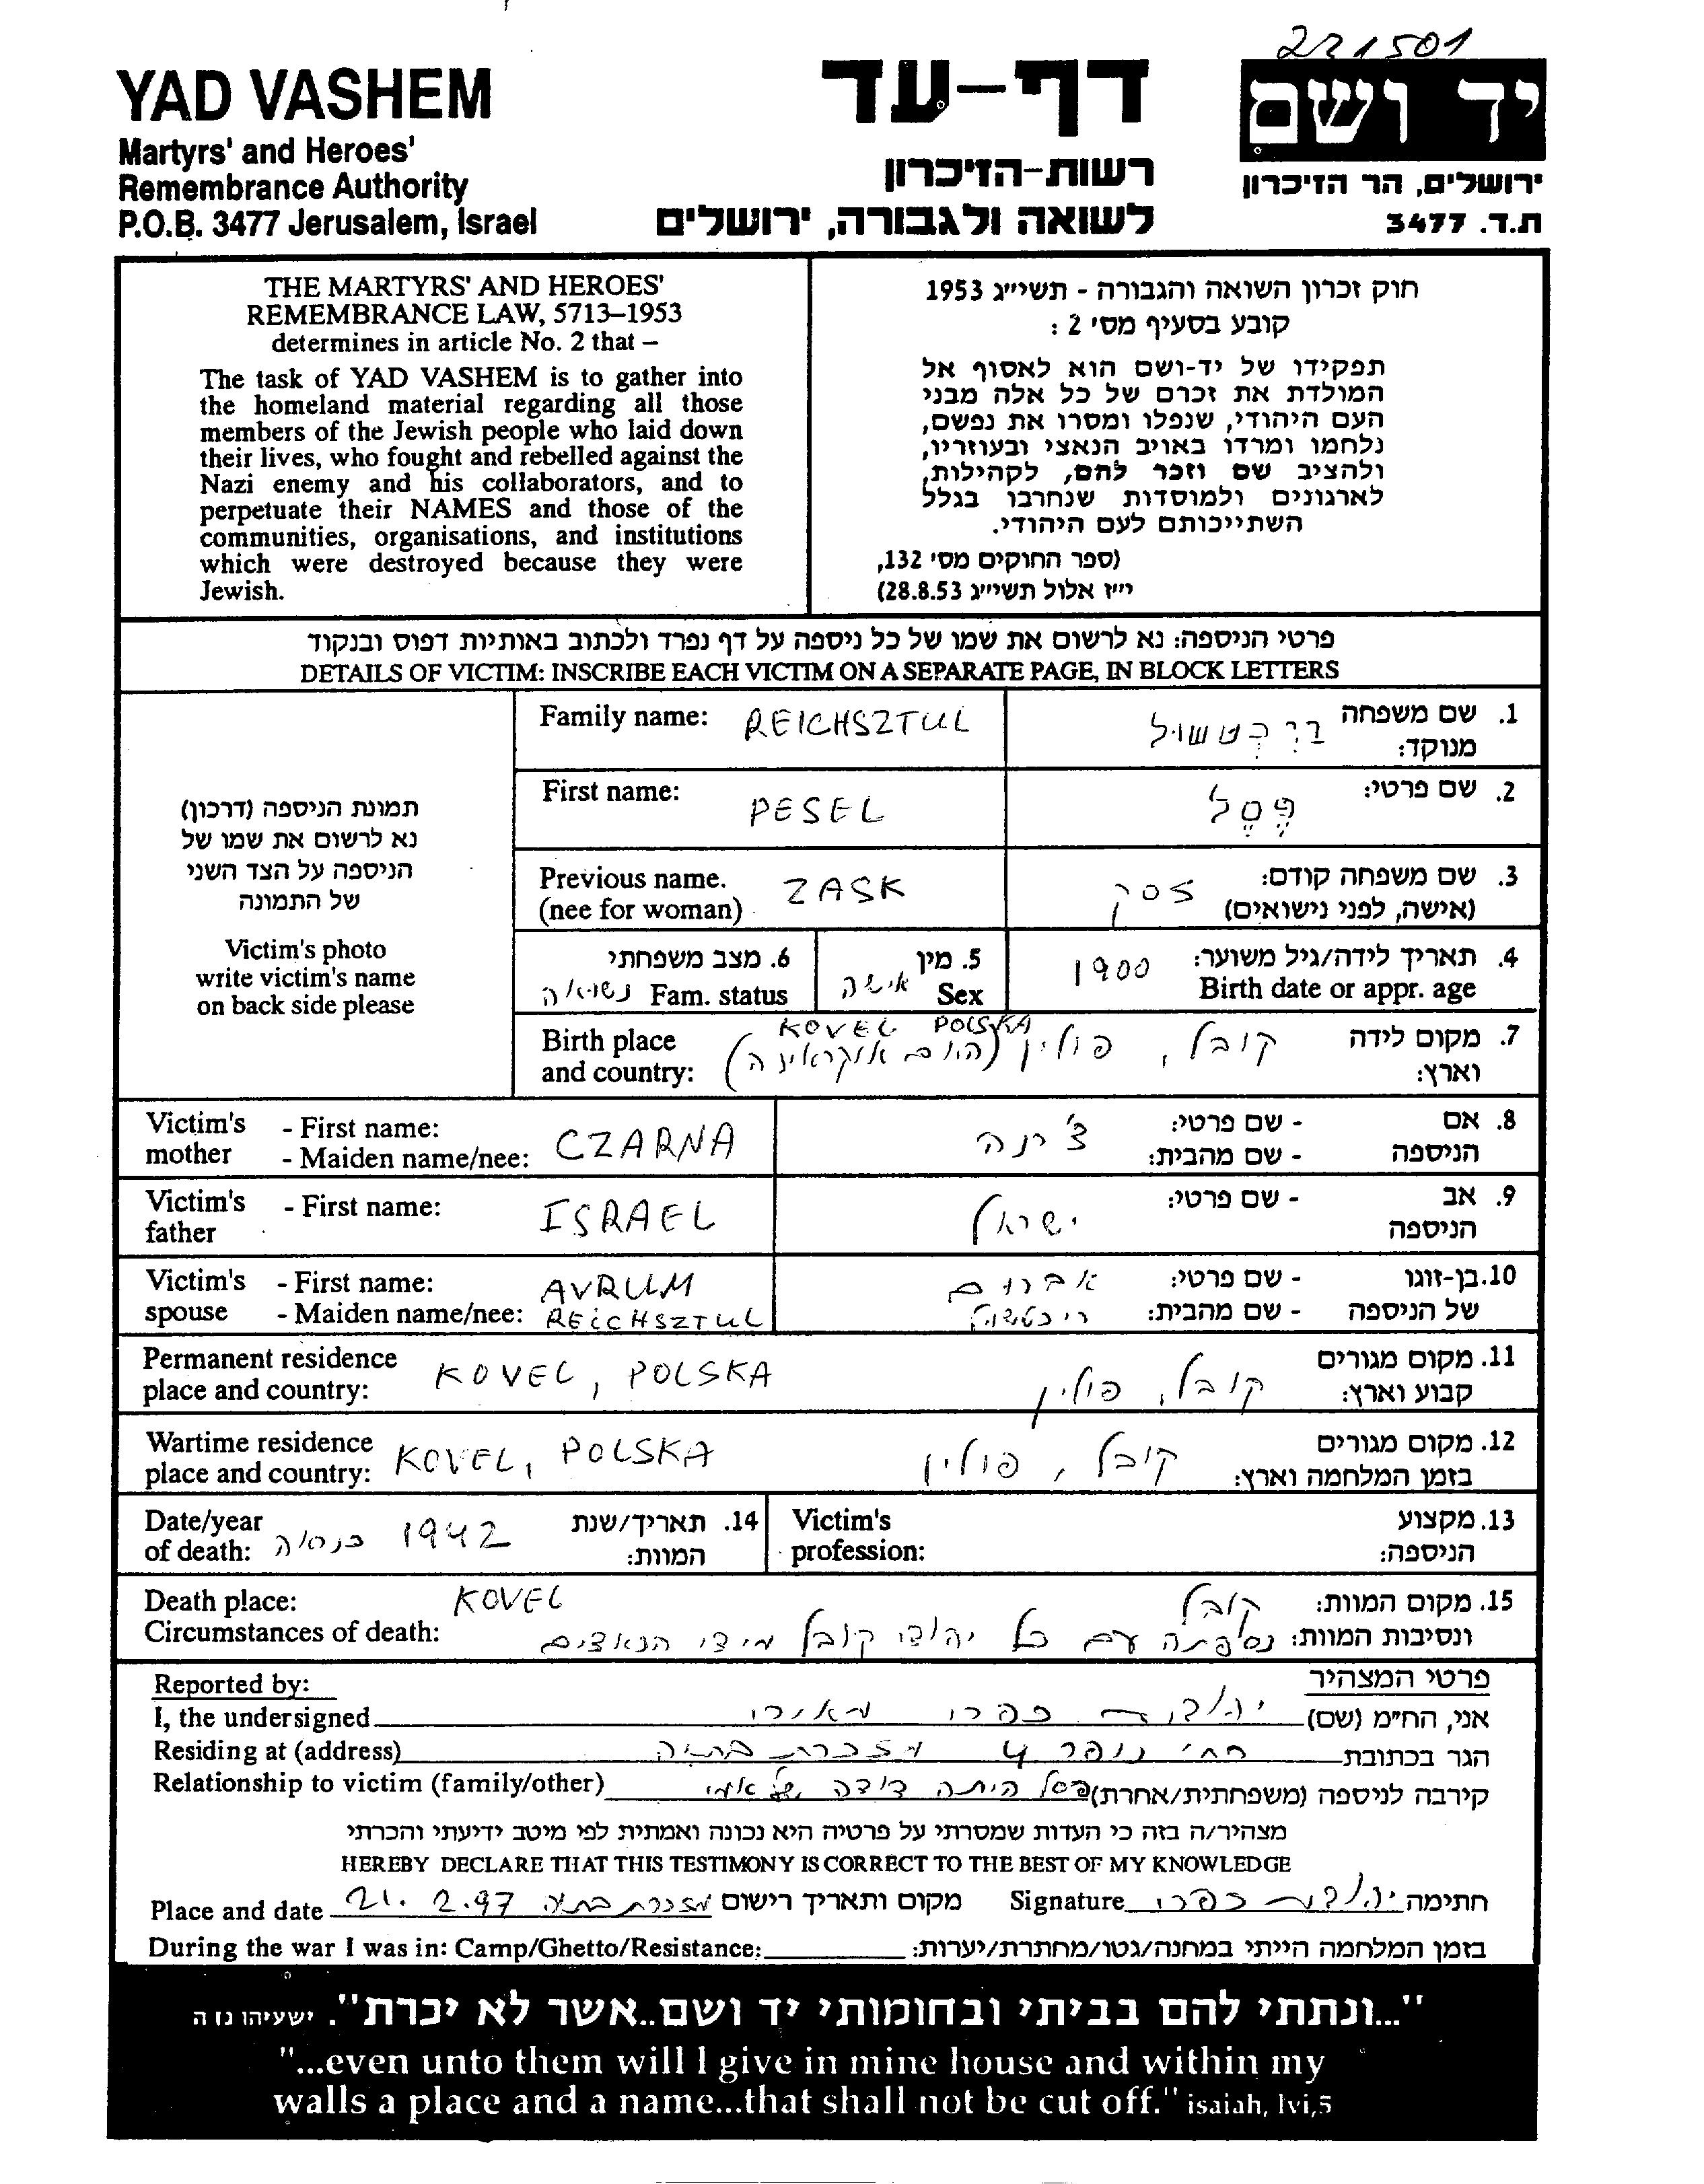 231501
YAD VASHEM
Martyrs' and Heroes'
Remembrance Authority
P.O.B. 3477 Jerusalem, Israel
דף-עד
רשות-הזיכרון
לשואה ולגבורה, ירושלים
יד ושם
ירושלים, הר הזיכרון
ת.ד. 3477
THE MARTYRS' AND HEROES'
REMEMBRANCE LAW, 5713–1953
determines in article No. 2 that –
The task of YAD VASHEM is to gather into
the homeland material regarding all those
members of the Jewish people who laid down
their lives, who fought and rebelled against the
Nazi enemy and his collaborators, and to
perpetuate their NAMES and those of the
communities, organisations, and institutions
which were destroyed because they were
Jewish.
חוק זכרון השואה והגבורה - תשי״ג 1953
קובע בסעיף מס׳ 2 :
תפקידו של יד-ושם הוא לאסוף אל
המולדת את זכרם של כל אלה מבני
העם היהודי, שנפלו ומסרו את נפשם,
נלחמו ומרדו באויב הנאצי ובעוזריו,
ולהציב שם וזכר להם, לקהילות,
לארגונים ולמוסדות שנחרבו בגלל
השתייכותם לעם היהודי.
(ספר החוקים מס׳ 132,
י״ז אלול תשי״ג 28.8.53)
פרטי הניספה: נא לרשום את שמו של כל ניספה על דף נפרד ולכתוב באותיות דפוס ובנקוד
DETAILS OF VICTIM: INSCRIBE EACH VICTIM ON A SEPARATE PAGE, IN BLOCK LETTERS
תמונת הניספה (דרכון)
נא לרשום את שמו של
הניספה על הצד השני
של התמונה
Victim's photo
write victim's name
on back side please
Family name: REICHSZTUL
1. שם משפחה
מנוקד:
First name: PESEL
2. שם פרטי: פֶּסֶל
Previous name. ZASK
(nee for woman)
3. שם משפחה קודם: זסק
(אישה, לפני נישואים)
4. תאריך לידה/גיל משוער: 1900
Birth date or appr. age
5. מין אישה
Sex
6. מצב משפחתי
Fam. status נשואה
Birth place KOVEL POLSKA
and country:
7. מקום לידה קובל, פולין (היום אוקראינה)
וארץ:
Victim's - First name: CZARNA
mother - Maiden name/nee:
8. אם - שם פרטי: צ׳רנה
הניספה - שם מהבית:
Victim's - First name: ISRAEL
father
9. אב - שם פרטי: ישראל
הניספה
Victim's - First name: AVRUM
spouse - Maiden name/nee: REICHSZTUL
10. בן-זוגו - שם פרטי: אברום
של הניספה - שם מהבית: ריכשטול
Permanent residence KOVEL, POLSKA
place and country:
11. מקום מגורים קובל, פולין
קבוע וארץ:
Wartime residence KOVEL, POLSKA
place and country:
12. מקום מגורים קובל, פולין
בזמן המלחמה וארץ:
Date/year 1942
of death: בשואה
14. תאריך/שנת
המוות:
Victim's
profession:
13. מקצוע
הניספה:
Death place: KOVEL
Circumstances of death:
15. מקום המוות: קובל
ונסיבות המוות: נספתה עם כל יהודי קובל מידי הנאצים
Reported by:
פרטי המצהיר
I, the undersigned
אני, הח״מ (שם) יהודית כפרי מאירי
Residing at (address)
הגר בכתובת 4 מזכרת בתיה
Relationship to victim (family/other)
קירבה לניספה (משפחתית/אחרת) פסל היתה דודה של אמי
מצהיר/ה בזה כי העדות שמסרתי על פרטיה היא נכונה ואמתית לפי מיטב ידיעתי והכרתי
HEREBY DECLARE THAT THIS TESTIMONY IS CORRECT TO THE BEST OF MY KNOWLEDGE
Place and date 21. 2.97 מזכרת בתיה מקום ותאריך רישום
Signature יהודית כפרי חתימה
During the war I was in: Camp/Ghetto/Resistance:
בזמן המלחמה הייתי במחנה/גטו/מחתרת/יערות:
"...ונתתי להם בביתי ובחומותי יד ושם..אשר לא יכרת". ישעיהו נו ה
"...even unto them will I give in mine house and within my
walls a place and a name...that shall not be cut off." isaiah, lvi,5